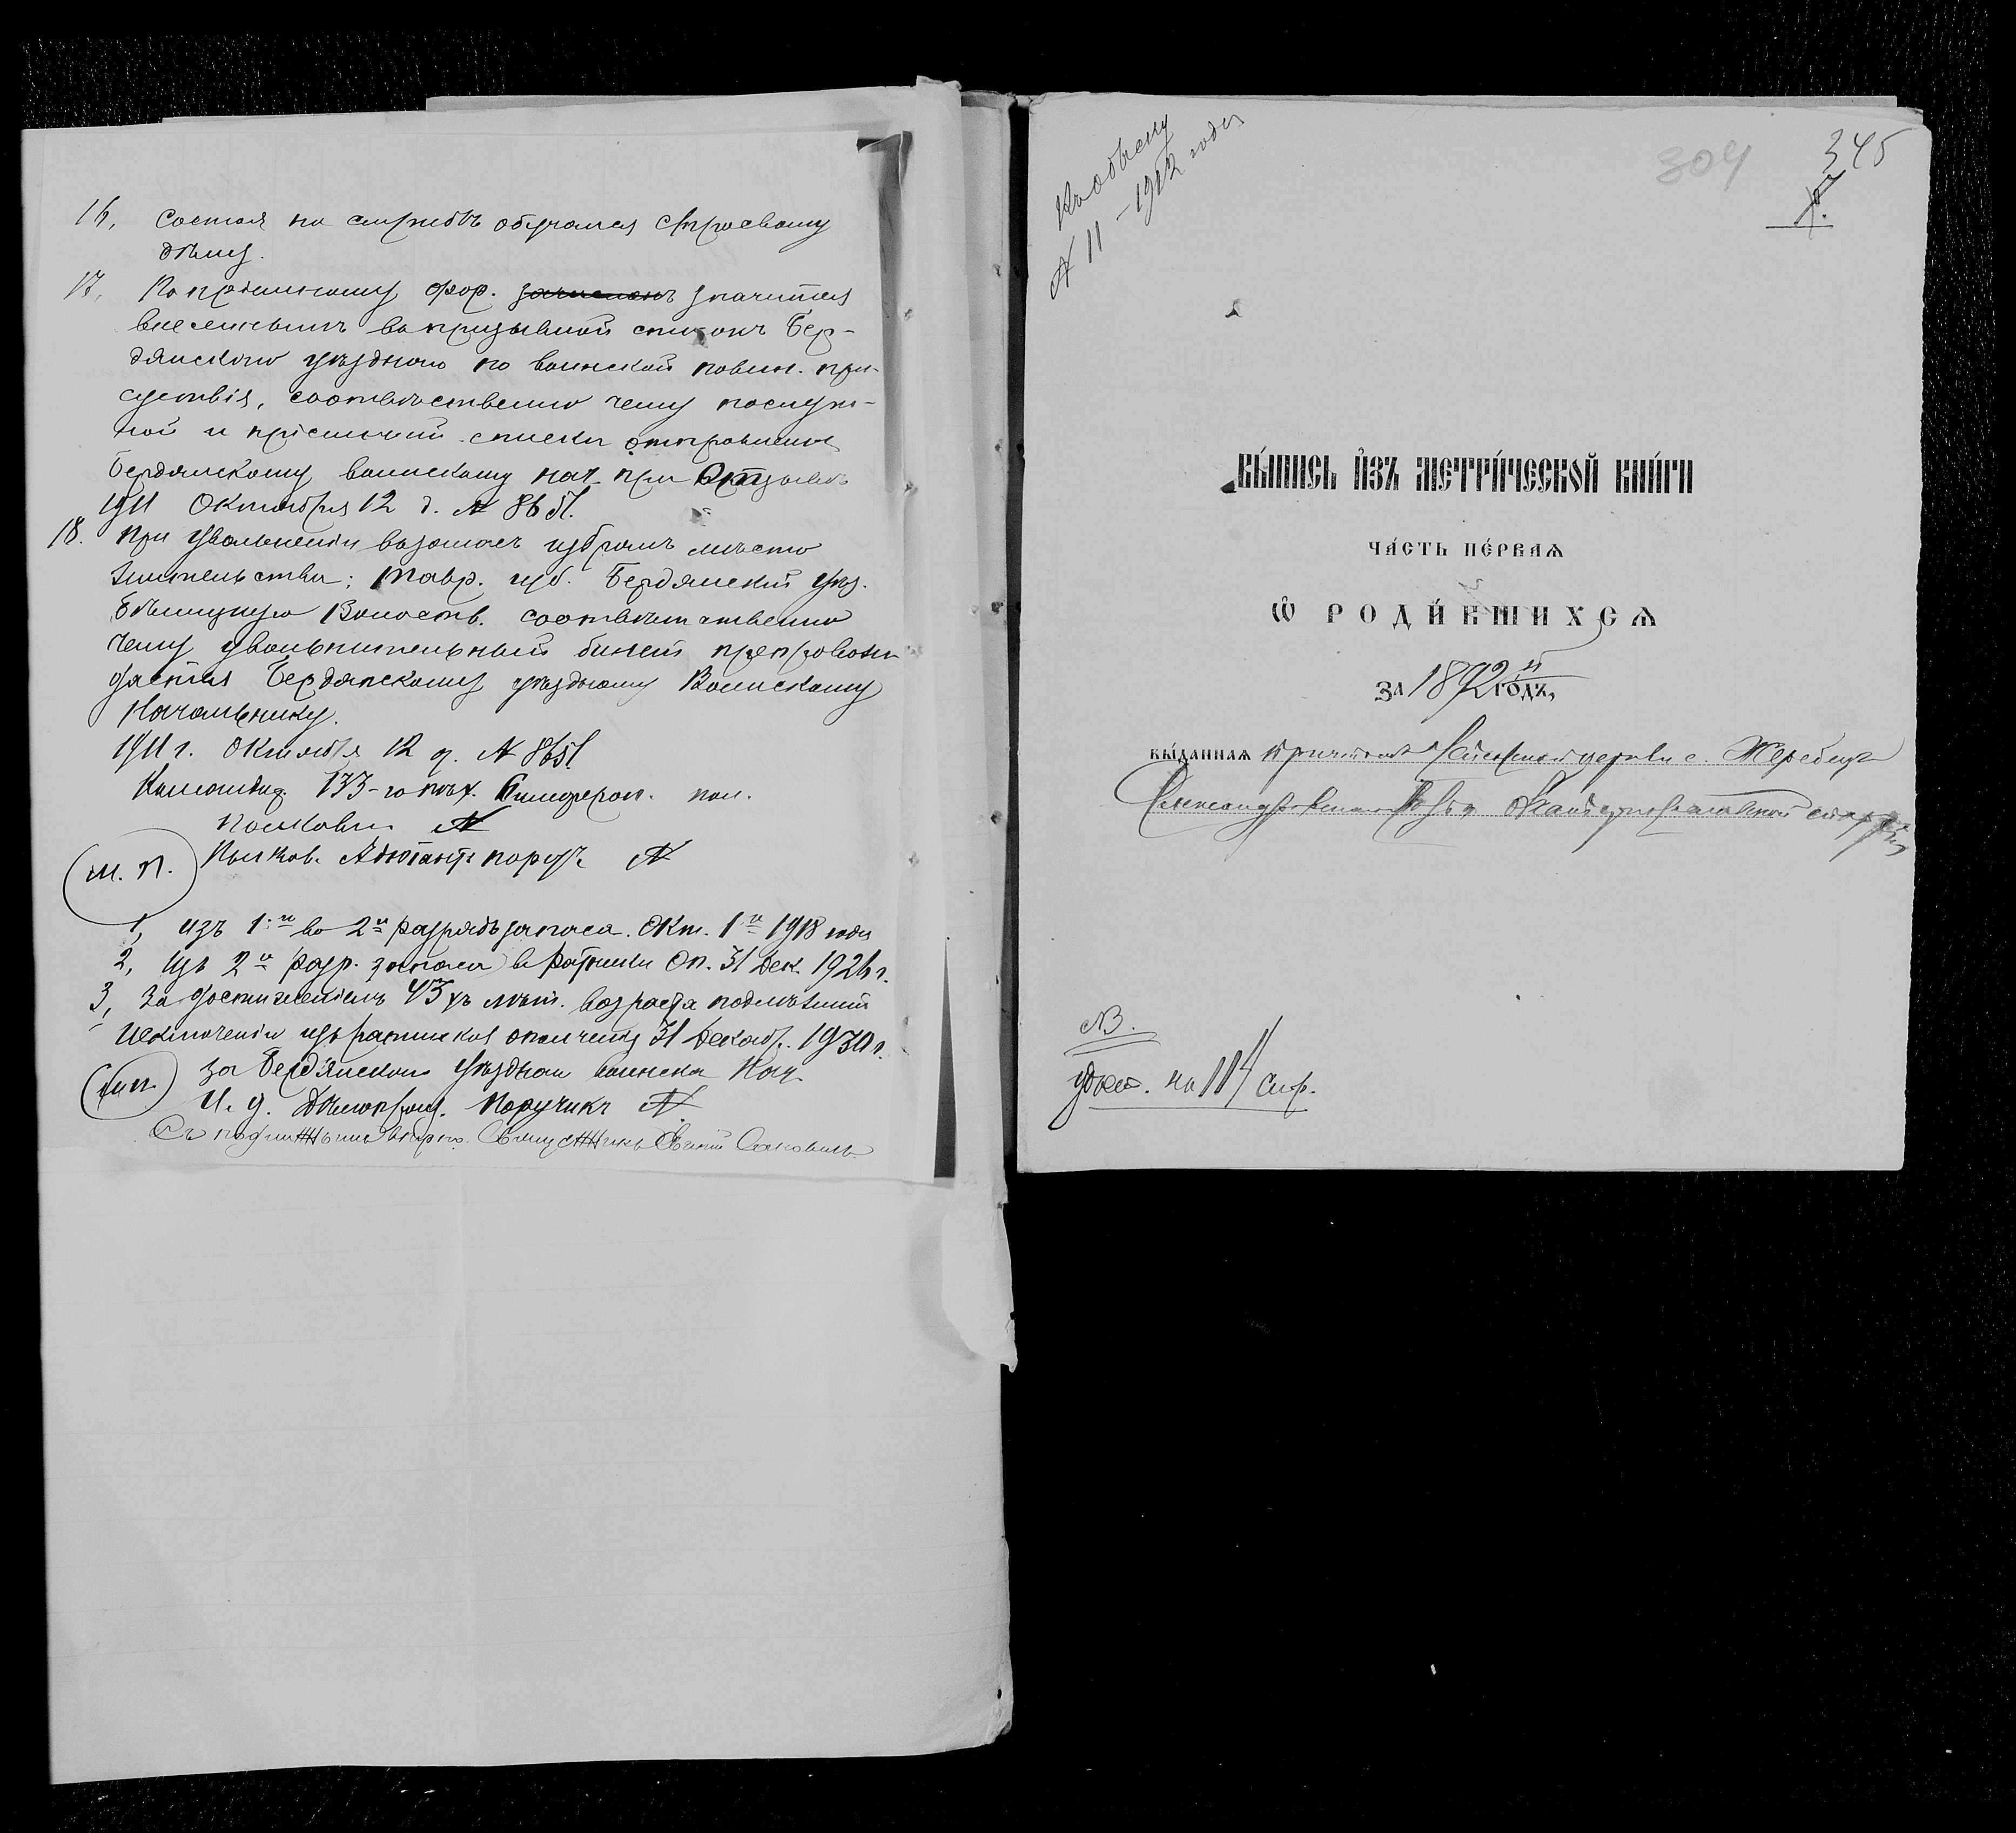 16, Состоя на службѣ обучался строевому
дѣлу.
17, По пріемному фор. зачисленъ значится
внесеннымъ въ призывной списокъ Бер-
дянскаго уѣзднаго по воинской повин. при-
сутствія, соотвѣтственно чему послуж-
ной и пріемный списки отправлены
Бердянскому воинскому нач. при отзывѣ
1911 Октября 12 д. № 8651.
18. При увольненіи въ запасъ избралъ мѣсто
жительства: Тавр. губ. Бердянскій уѣз.
Волость. соотвѣтственно
чему увольнительный билетъ препровож-
дается Бердянскому уѣздному Воинскому
Начальнику.
1911 г. Октября 12 д. № 8651.
Командир. 133-го пѣх. Симфероп. пол.
Полковн. N
Полков. Адъютантъ поруч. N
М. П.
1, изъ 1го во 2й разрядъ запаса. Окт. 1го 1918 года
2, Изъ 2го разр. запаса въ ратники Оп. 31 дек. 1926 г.
3, За достиженіемъ 43хъ лѣт. возраста подлежитъ
исключенію изъ ратниковъ ополченія 31 декабр. 1930 г.
За Бердянскаго Уѣзднаго воинска Нач.
М. П. И. д. Дѣлопроиз. Поручикъ N.
Съ подлиннымъ вѣрно. Священникъ
Къ обыску
№ 11 – 1912 года
304
345
ВЫ́ПИСЬ И҆ЗЪ МЕТРИ́ЧЕСКОЙ КНИ́ГИ
ЧА́СТЬ ПЕ́РВАѦ
Ѡ҆ РОДИ́ВШИХСѦ
ЗА 1892й ГО́ДЪ,
ВЫ́ДАННАѦ причтомъ церкви с. Жеребца
Александровскаго Екатеринославской епархіи
NB.
на 114 стр.